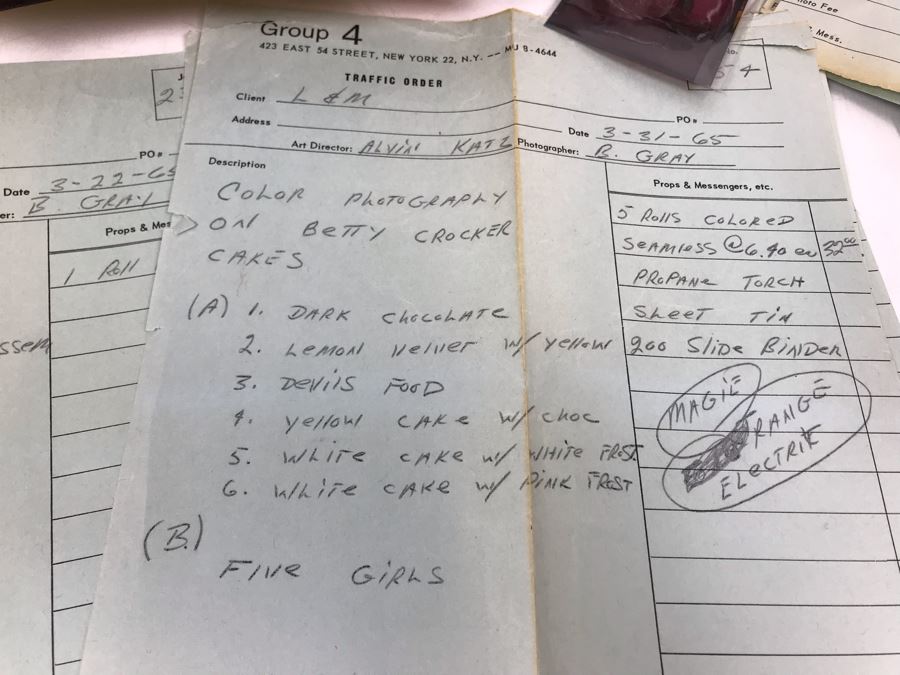 Group 4
423 EAST 54 STREET, NEW YORK 22, N.Y. -- MU 8-4644
TRAFFIC ORDER
Client L & M
Address
PO#
Date 3-31-65
Art Director: ALVIN KATZ
Photographer: B. GRAY
Description
COLOR PHOTOGRAPHY
ON BETTY CROCKER
CAKES
(A) 1. DARK CHOCOLATE
2. LEMON VELVET W/ YELLOW
3. DEVILS FOOD
4. YELLOW CAKE W/ CHOC
5. WHITE CAKE W/ WHITE FROST.
6. WHITE CAKE W/ PINK FROST
(B.)
FIVE GIRLS
Props & Messengers, etc.
5 ROLLS COLORED
SEAMLESS @ 6.40 ea 32.00
PROPANE TORCH
SHEET TIN
200 SLIDE BINDER
MAGIE
RANGE
ELECTRIK
PO#
Date 3-22-65
er: B. GRAY
Props & Mes
1 Roll
oto Fee
Mess.